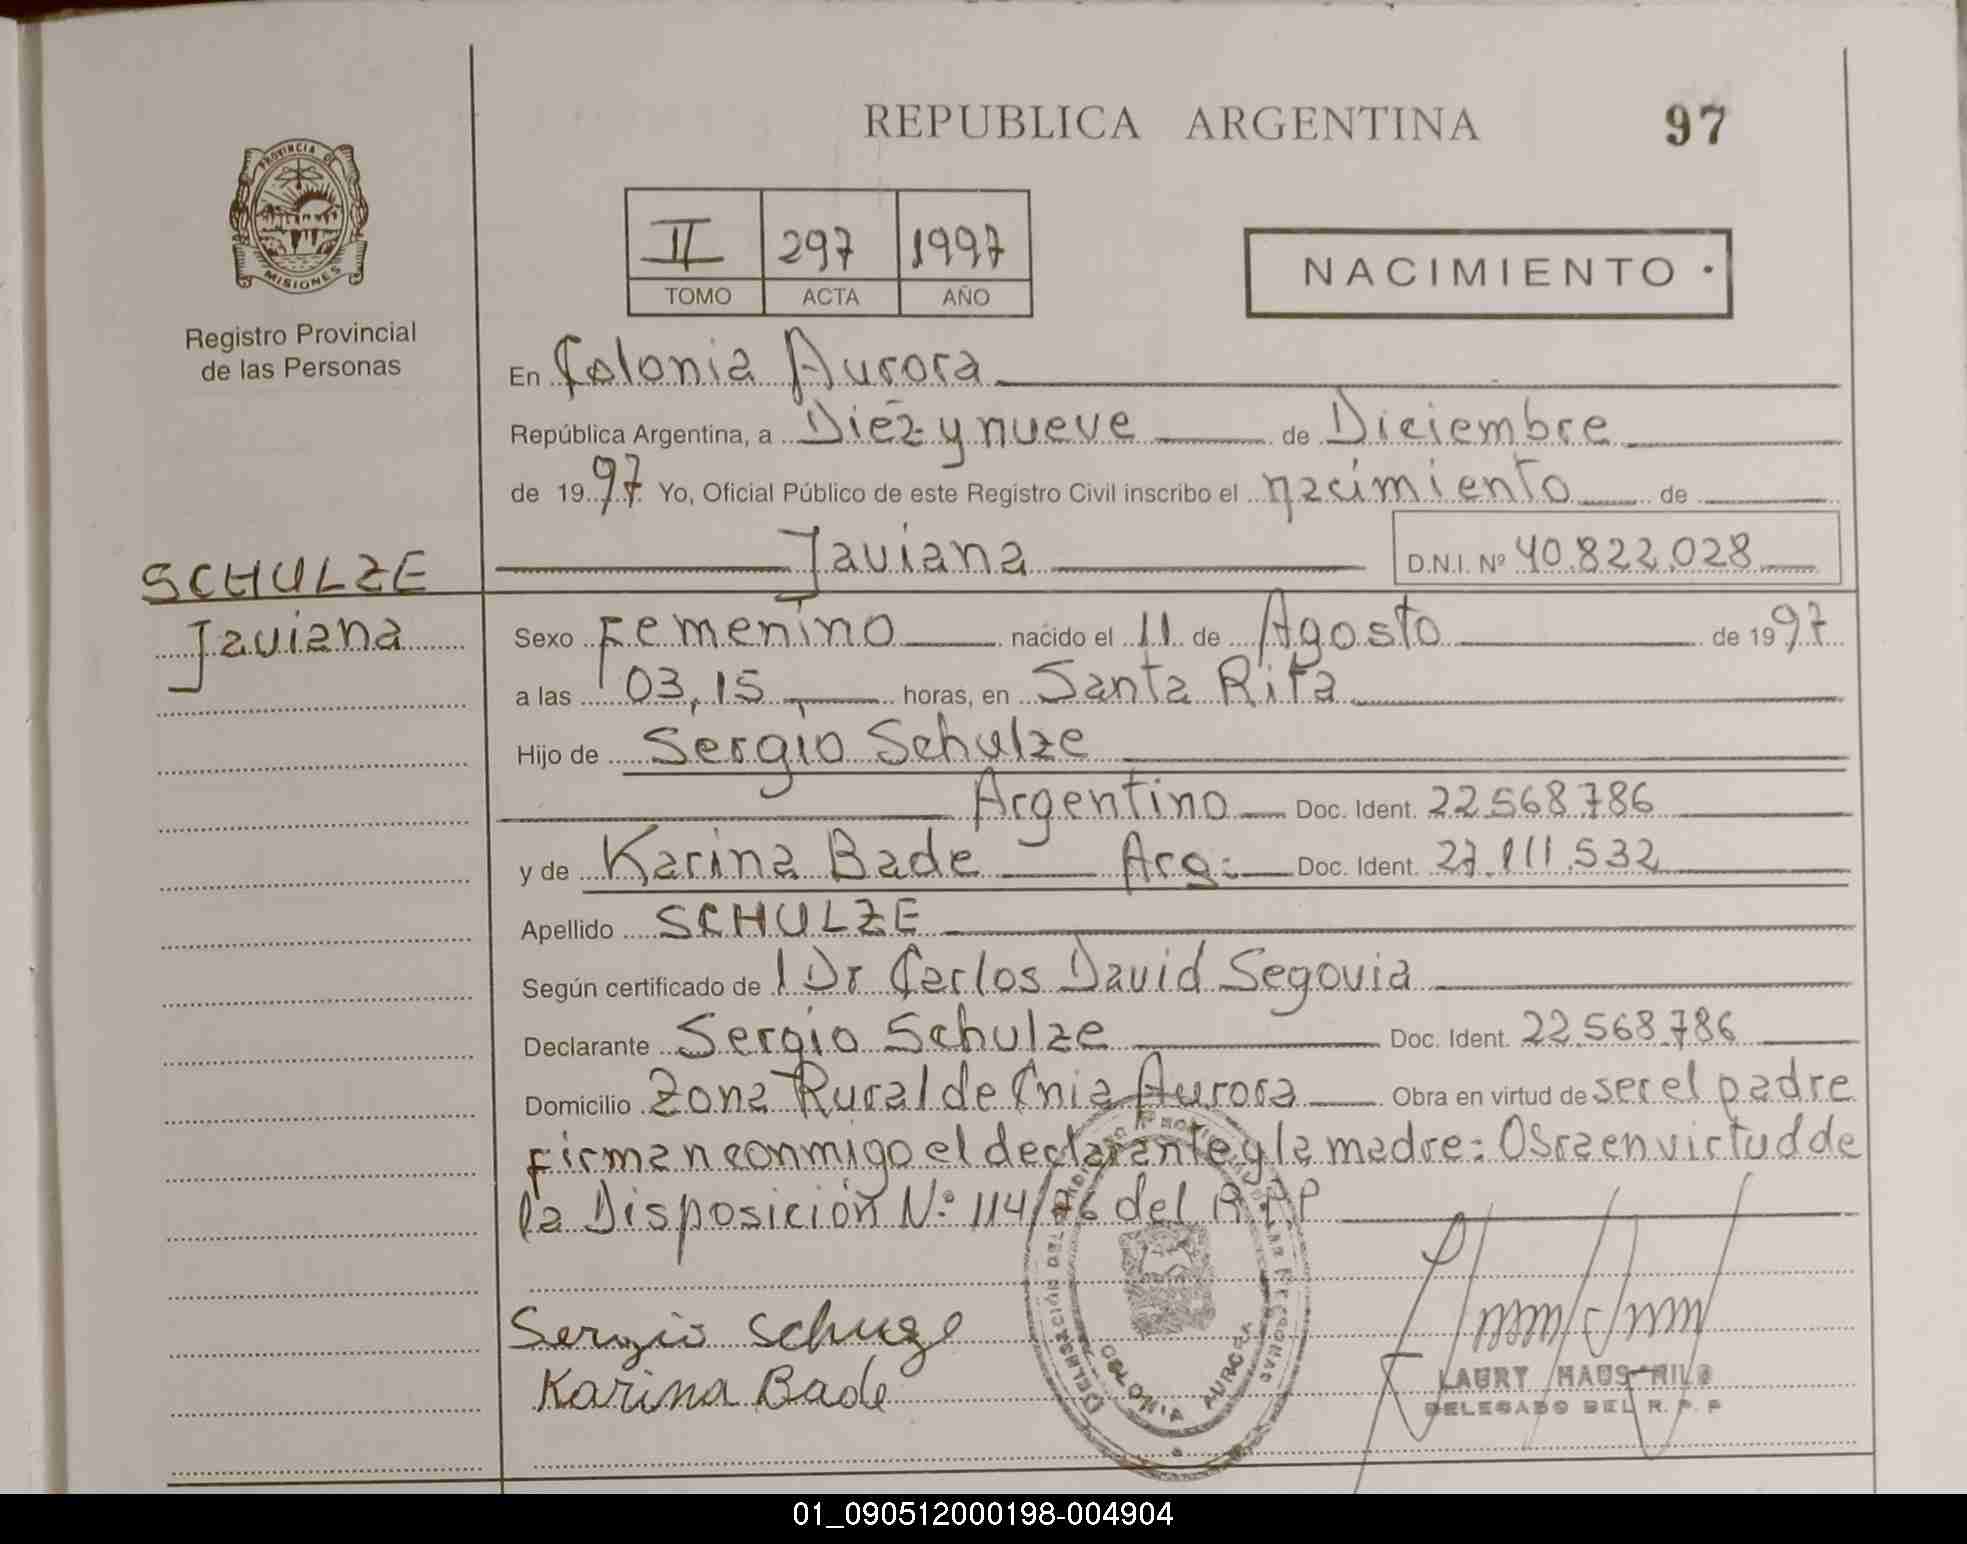 REPUBLICA ARGENTINA 97
PROVINCIA DE
MISIONES
Registro Provincial
de las Personas
II 297 1997
TOMO ACTA AÑO
NACIMIENTO
En Colonia Aurora
República Argentina, a Diez y nueve de Diciembre
de 1997 Yo, Oficial Público de este Registro Civil inscribo el nacimiento de
Javiana D.N.I. Nº 40.822.028
SCHULZE
Javiana
Sexo Femenino nacido el 11 de Agosto de 1997
a las 03,15 horas, en Santa Rita
Hijo de Sergio Schulze
Argentino Doc. Ident. 22.568.786
y de Karina Bade Arg: Doc. Ident. 27.111.532
Apellido SCHULZE
Según certificado de l Dr Carlos David Segovia
Declarante Sergio Schulze Doc. Ident. 22.568.786
Domicilio Zona Rural de Cnia Aurora Obra en virtud de ser el padre
Firman conmigo el declarante y la madre: Osra en virtud de
la Disposición Nº 114/76 del R.P.P
Sergio Schuze
Karina Bade
COLONIA AURORA
LAURY HAUS
DELEGADO DEL R. P. P
01_090512000198-004904